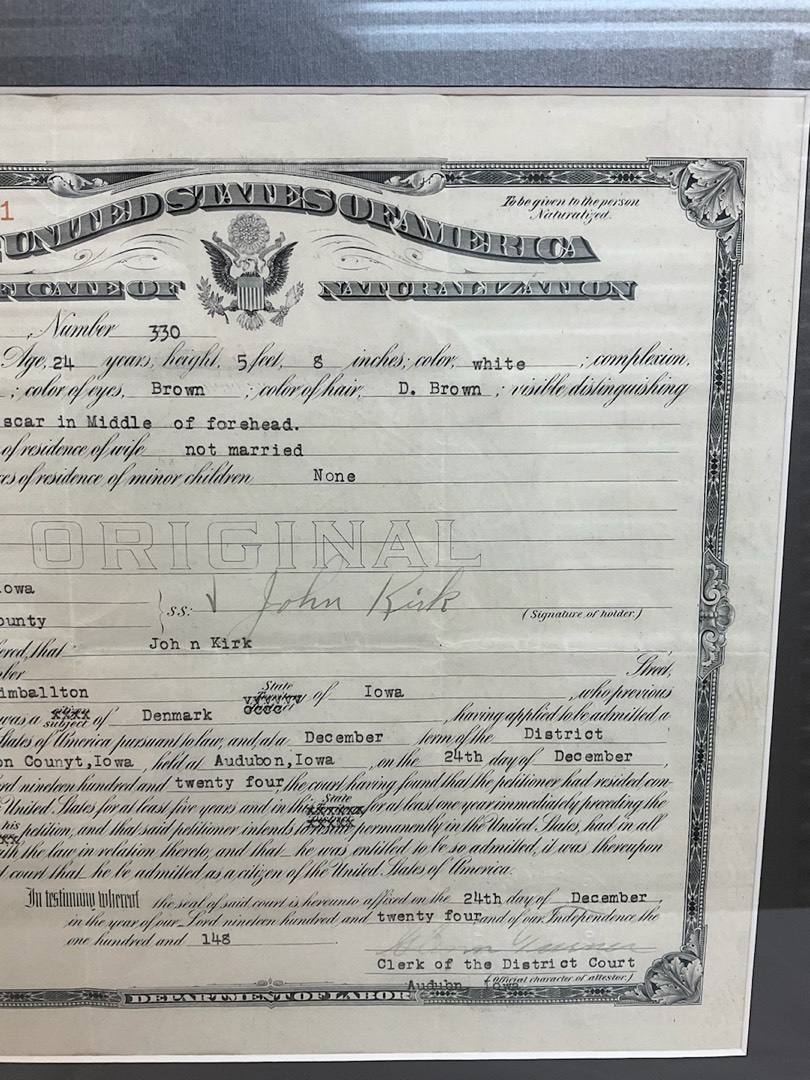 1
UNITED STATES OF AMERICA
To be given to the person
Naturalized.
IFICATE OF NATURALIZATION
Number 330
Age, 24 years, height, 5 feet, 8 inches; color, white ; complexion,
; color of eyes, Brown ; color of hair, D. Brown ; visible distinguishing
scar in Middle of forehead.
of residence of wife not married
ces of residence of minor children None
ORIGINAL
owa
ounty
ss: John Kirk
(Signature of holder.)
ered, that Joh n Kirk
ber Street,
imballton State of Iowa , who previous
was a subject of Denmark , having applied to be admitted a
States of America pursuant to law, and at a December term of the District
on Counyt,Iowa , held at Audubon,Iowa , on the 24th day of December ,
ord nineteen hundred and twenty four the court having found that the petitioner had resided con-
United States for at least five years and in this State for at least one year immediately preceding the
his petition, and that said petitioner intends permanently in the United States, had in all
ith the law in relation thereto, and that he was entitled to be so admitted, it was thereupon
court that he be admitted as a citizen of the United States of America.
In testimony whereof the seal of said court is hereunto affixed on the 24th day of December ,
in the year of our Lord nineteen hundred and twenty four and of our Independence the
one hundred and 148
Clerk of the District Court
(Official character of attestor.)
Audubn, Iowa
DEPARTMENT OF LABOR